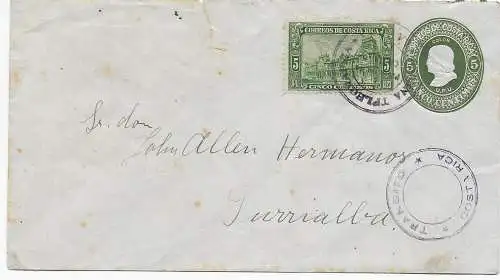 CORREOS DE COSTA RICA
5 5
CINCO CENTIMOS
COLON
U.P.U.
5 5
CINCO CENTIMOS
Sr. don
John Allen Hermanos
Turrialba
TRANSITO
COSTA RICA